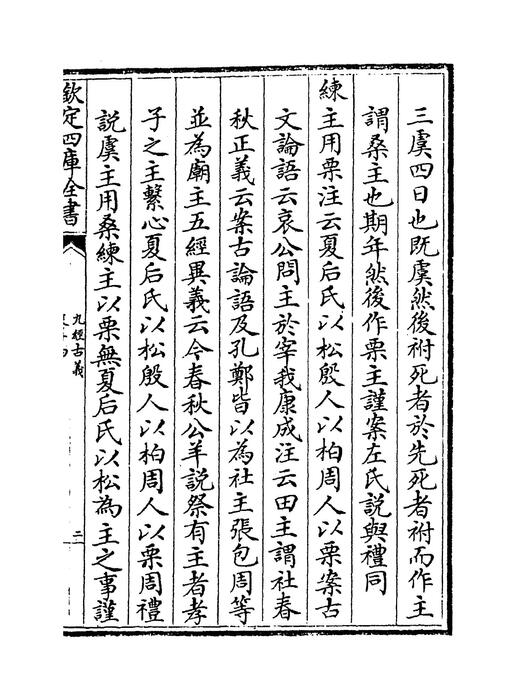 三虞四日也既虞然後祔死者於先死者祔而作主
謂桑主也期年然後作栗主謹案左氏說與禮同
練主用栗注云夏后氏以松殷人以柏周人以栗案古
文論語云哀公問主於宰我康成注云田主謂社春
秋正義云案古論語及孔鄭皆以為社主張包周等
並為廟主五經異義云今春秋公羊說祭有主者孝
子之主繫心夏后氏以松殷人以柏周人以栗周禮
說虞主用桑練主以栗無夏后氏以松為主之事謹
欽定四庫全書
九經古義
二